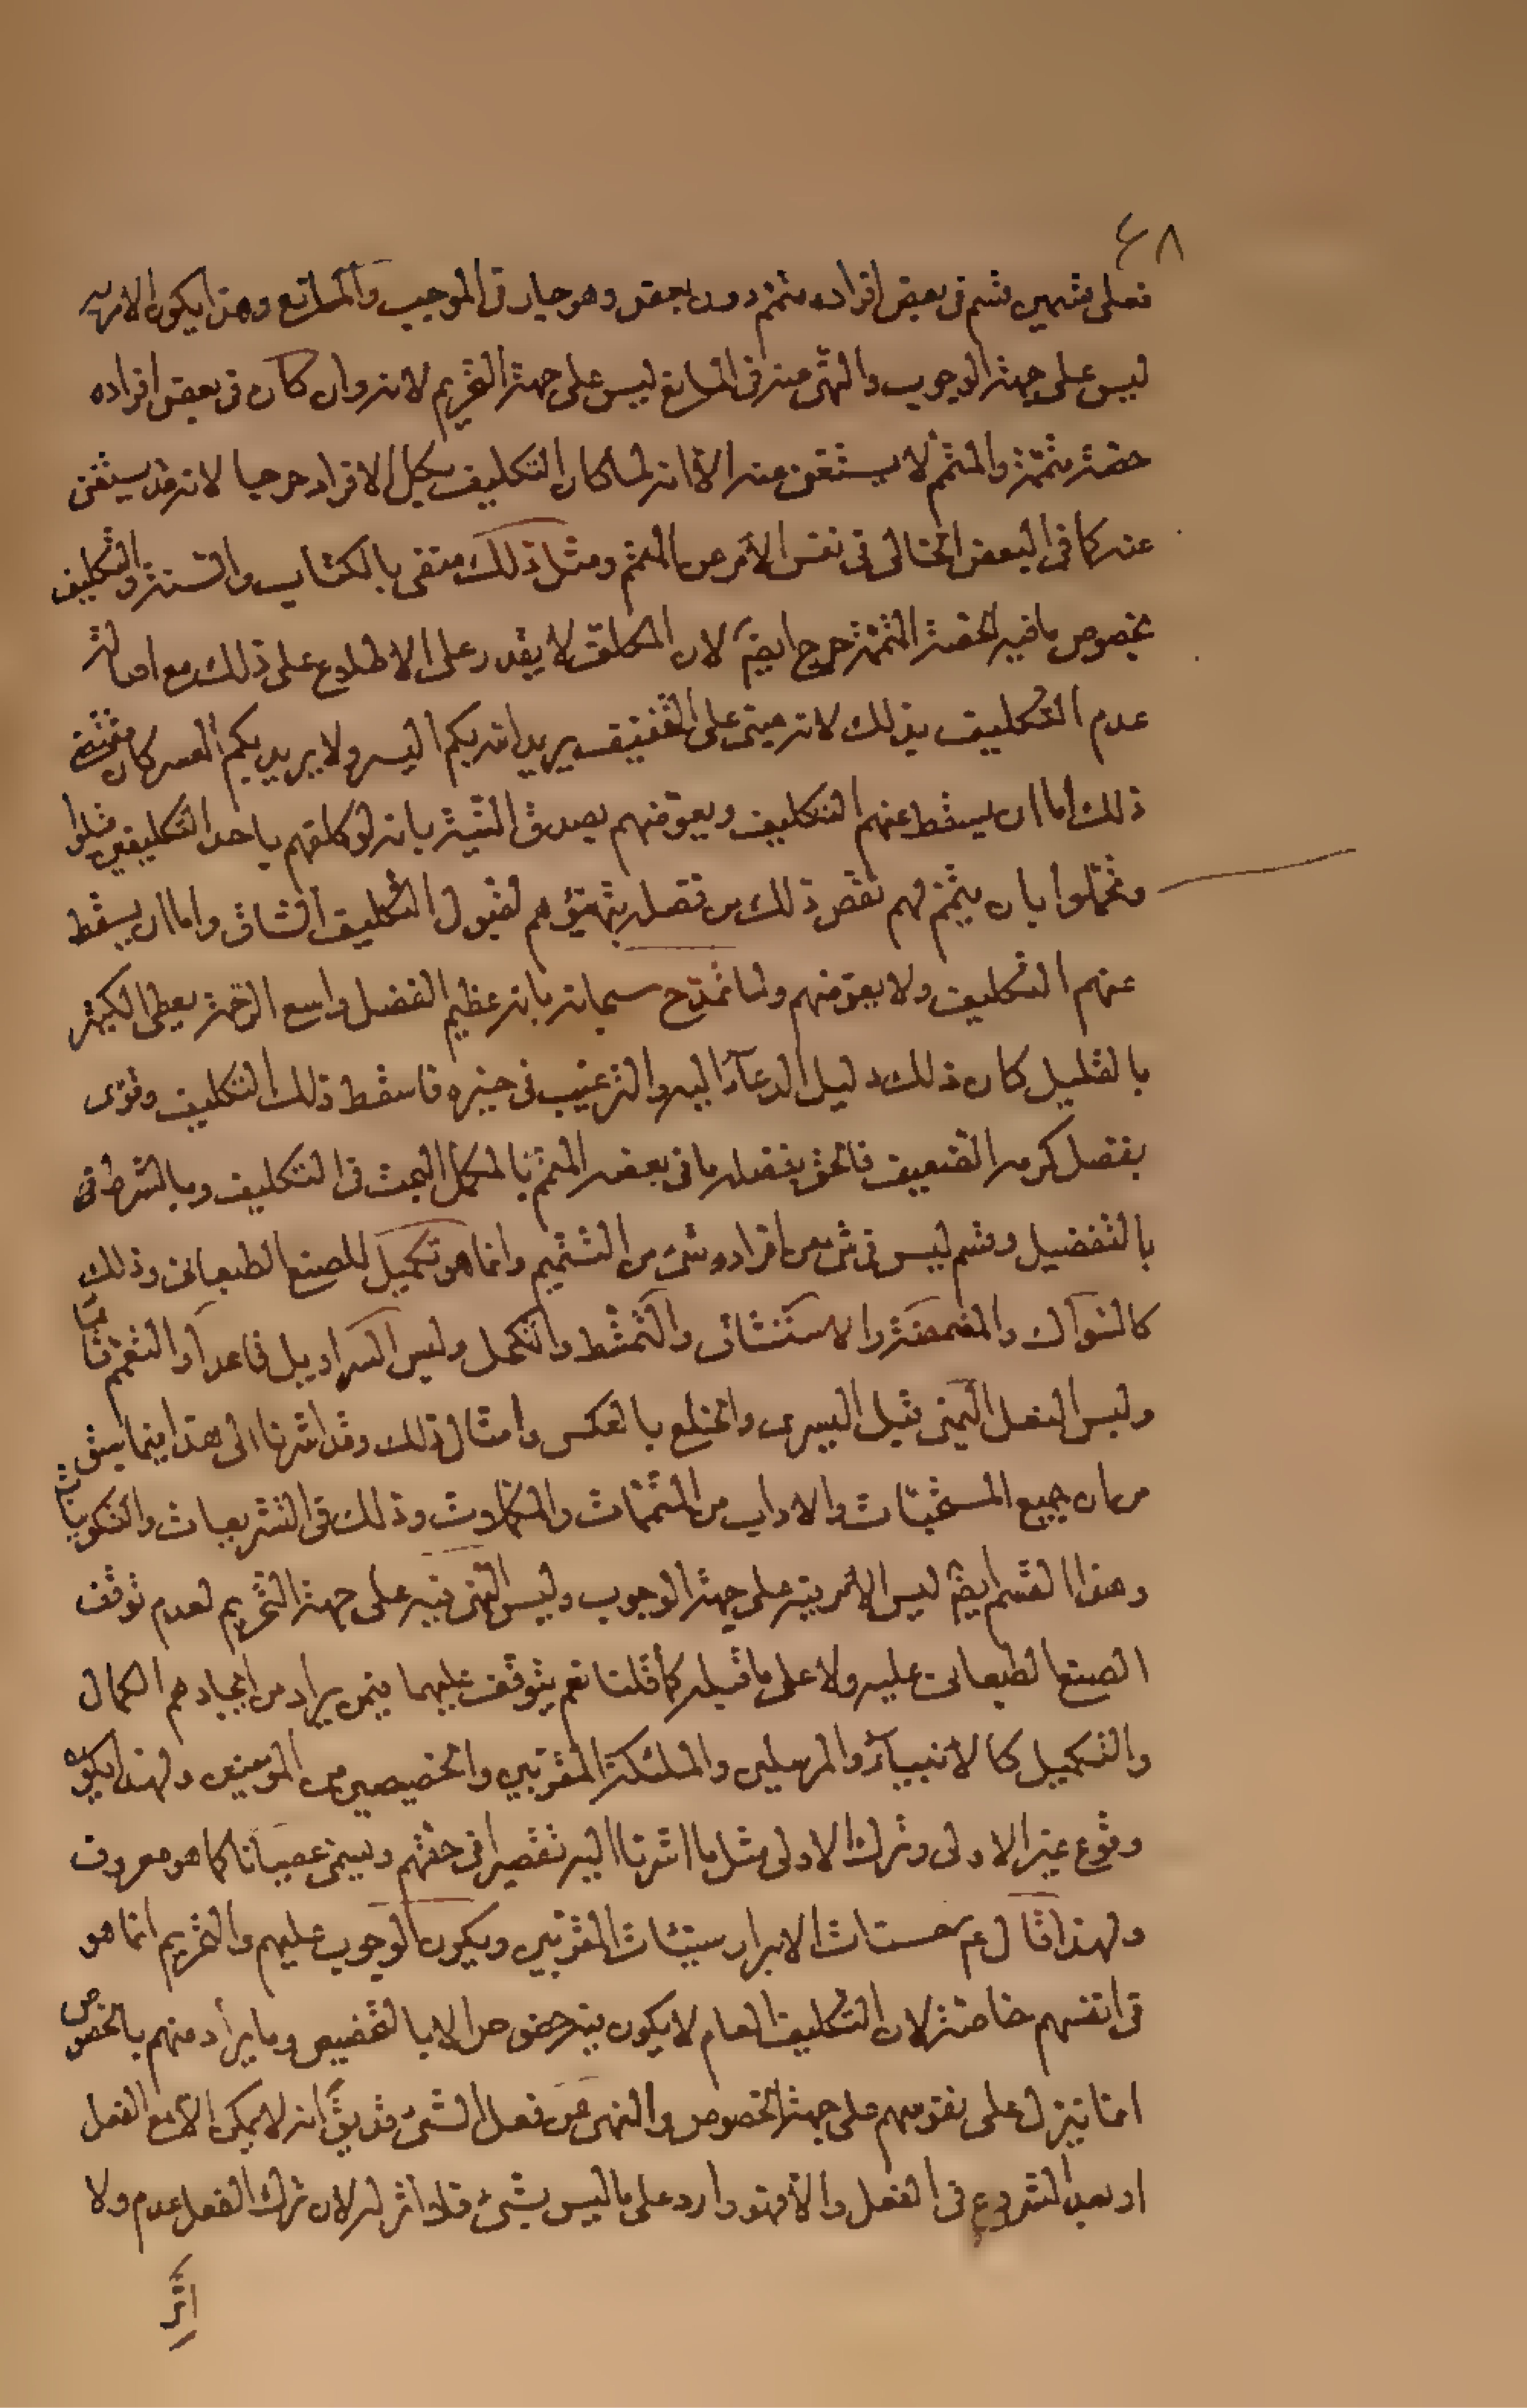 ٤٨
فعلى قسمين قسم فى بعض افراده متمم دون بعض وهو جار فى الموجب والمانع وهذا يكون الامر به
ليس على جهة الوجوب والنهى عنه فى المانع ليس على جهة التحريم لانه وان كان فى بعض افراده
حصة متممة والمتمم لا يستغنى عنه الا انه لما كان التكليف بكل الافراد حرجيا لانه قد يستغنى
عنه كما فى البعض الخالى فى نفس الامر من المتمم ومثل ذلك منفى بالكتاب والسنة والتكليف
بخصوص ما فيه الحصة المتممة حرج ايضا لان المكلف لا يقدر على الاطلاع على ذلك مع اصالة
عدم التكليف بذلك لانه مبنى على التخفيف يريد الله بكم اليسر ولا يريد بكم العسر كان مقتضى
ذلك اما ان يسقط عنهم التكليف ويعوضهم بصدق النية بانه لو كلفهم باحد التكليفين قبلوا
وتحملوا بان يتمم لهم نقص ذلك من فضله بتهيؤهم لقبول التكليف الشاق واما ان يسقط
عنهم التكليف ولا يعوضهم ولما تمدح سبحانه بانه عظيم الفضل واسع الرحمة يعطى الكثير
بالقليل كان ذلك دليل الدعاء اليه والترغيب فى خيره فاسقط ذلك التكليف وقوى
بفضل كرمه الضعيف فالحق بفضله ما فى بعضه المتمم بالمكمل البحت فى التكليف وبالشرط فى
بالتفضيل وقسم ليس فى شئ من افراده شئ من التتميم وانما هو تكميل للصنع الطبعانى وذلك
كالسواك والمضمضة والاستنشاق والتمشط والتكحل ولبس السراويل قاعدا والتعمم قائما
ولبس النعل اليمنى قبل اليسرى والخلع بالعكس وامثال ذلك وقد اشرنا الى هذا فيما سبق
من ان جميع المستحبات والاداب من المتممات والمكملات وذلك فى التشريعات والتكوينات
وهذا القسم ايضا ليس الامر فيه على جهة الوجوب وليس النهى فيه على جهة التحريم لعدم توقف
الصنع الطبعانى عليه ولا على ما قبله كما قلنا نعم يتوقف عليهما فيمن يراد من ايجادهم الكمال
والتكميل كالانبياء والمرسلين والملئكة المقربين والخصيصين من المؤمنين ولهذا يكون
وقوع غير الاولى وترك الاولى مثل ما اشرنا اليه تقصيرا فى حقهم ويسمى عصيانا كما هو معروف
ولهذا قال ع حسنات الابرار سيئات المقربين ويكون الوجوب عليهم والتحريم انما هو
فى انفسهم خاصة لان التكليف العام لا يكون فيه خصوص الا بالتخصيص وما يراد منهم بالخصوص
انما ينزل على نفوسهم على جهة الخصوص والنهى عن فعل الشئ قد يق انه لا يمكن الا مع الفعل
او بعد الشروع فى الفعل والا فهو وارد على ما ليس بشئ فلا اثر له لان ترك الفعل عدم ولا
اثر